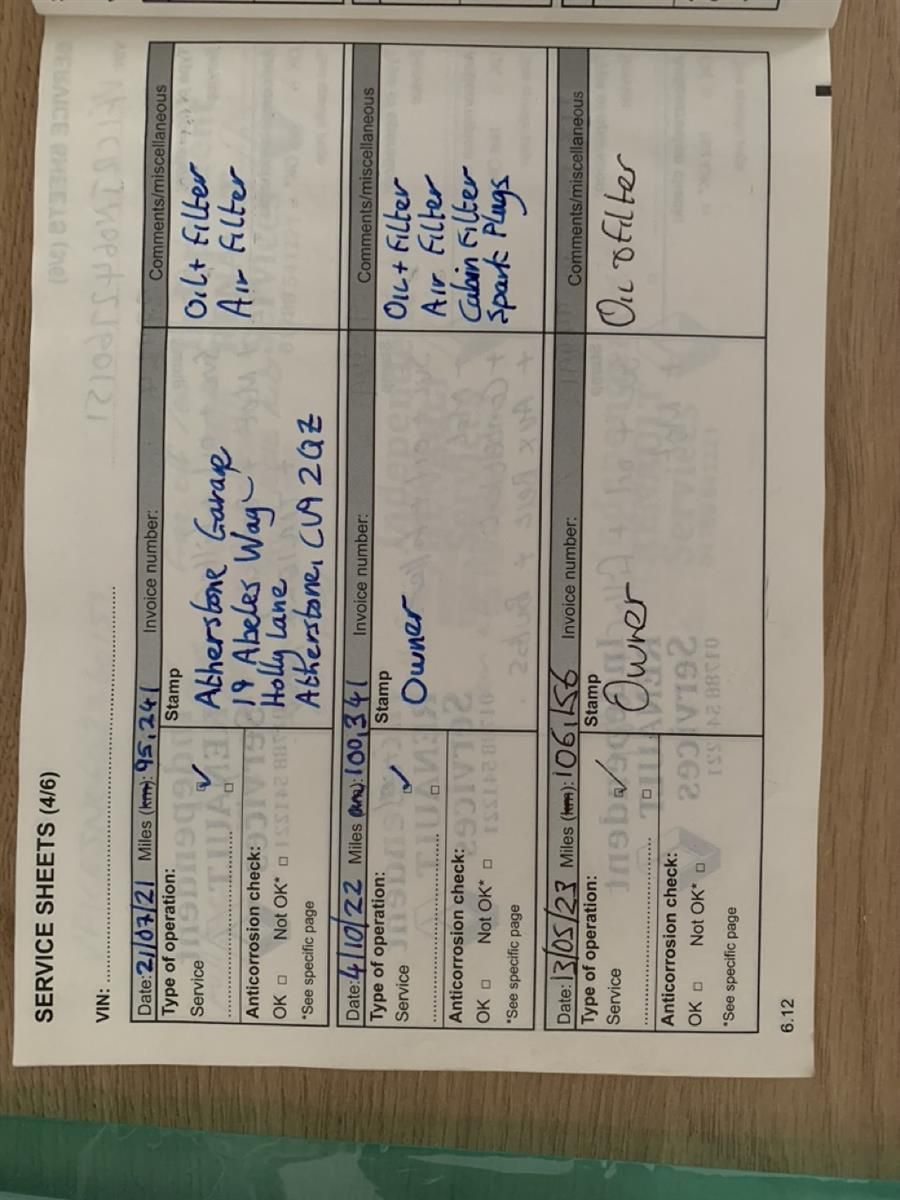 SERVICE SHEETS (4/6)
VIN: ........................................................................
Date: 21/07/21 Miles (km): 95,241 Invoice number: Comments/miscellaneous
Type of operation:
Service ☑
........................ □
Anticorrosion check:
OK □ Not OK* □
*See specific page
Stamp
Atherstone Garage
19 Abeles Way
Holly Lane
Atherstone, CV9 2QZ
Oil + Filter
Air Filter
Date: 4/10/22 Miles (km): 100,341 Invoice number: Comments/miscellaneous
Type of operation:
Service ☑
........................ □
Anticorrosion check:
OK □ Not OK* □
*See specific page
Stamp
Owner
Oil + Filter
Air Filter
Cabin Filter
Spark Plugs
Date: 13/05/23 Miles (km): 106,156 Invoice number: Comments/miscellaneous
Type of operation:
Service ☑
........................ □
Anticorrosion check:
OK □ Not OK* □
*See specific page
Stamp
Owner
Oil & Filter
6.12